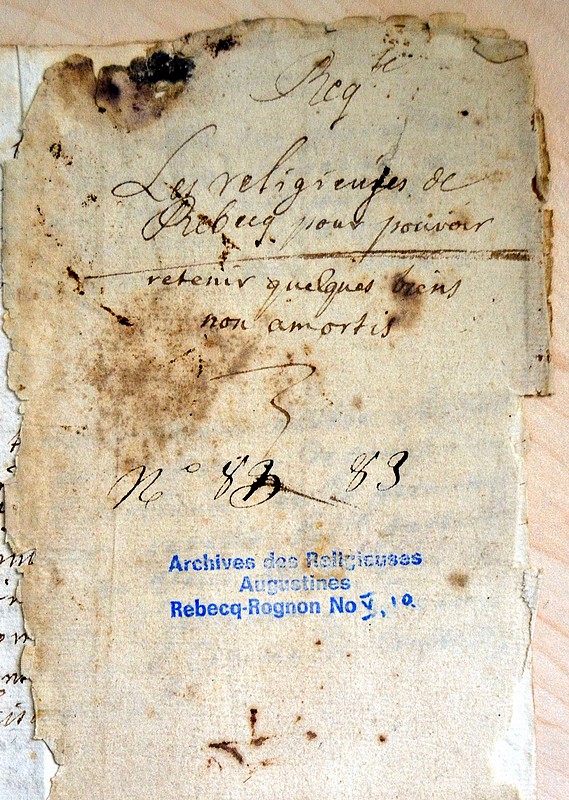 Reqte
Les religieuses de
Rebecq pour pouvoir
retenir quelques biens
non amortis
3
No 83 83
Archives des Religieuses
Augustines
Rebecq-Rognon No V, 10